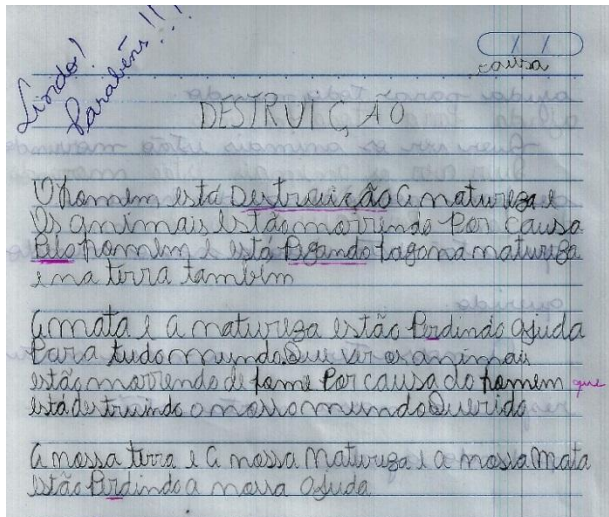 Lindo!
Parabéns!!!
/ /
causa
DESTRUIÇAO
O homem está Destruição a natureza e
Os animais Estão morrendo Por causa
Pelo homem e está Pegando fogo na natureza
e na terra também
A mata e a natureza estão Perdindo ajuda
Para tudo mundo. Que ver os animai
estão morrendo de fome Por causa do homem que
está destruindo o nosso mundo Querido
A nossa terra e A nossa Natureza e a nossa Mata
Estão Perdindo a nossa Ajuda